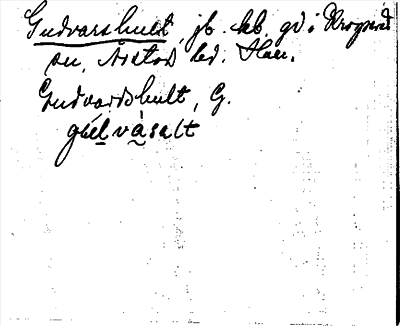 Gudvarshult, jb. kb. gd i Krogsered
sn, Årstad hd. Hall.
Gudvardshult, G.
gu̇elvȧsalt